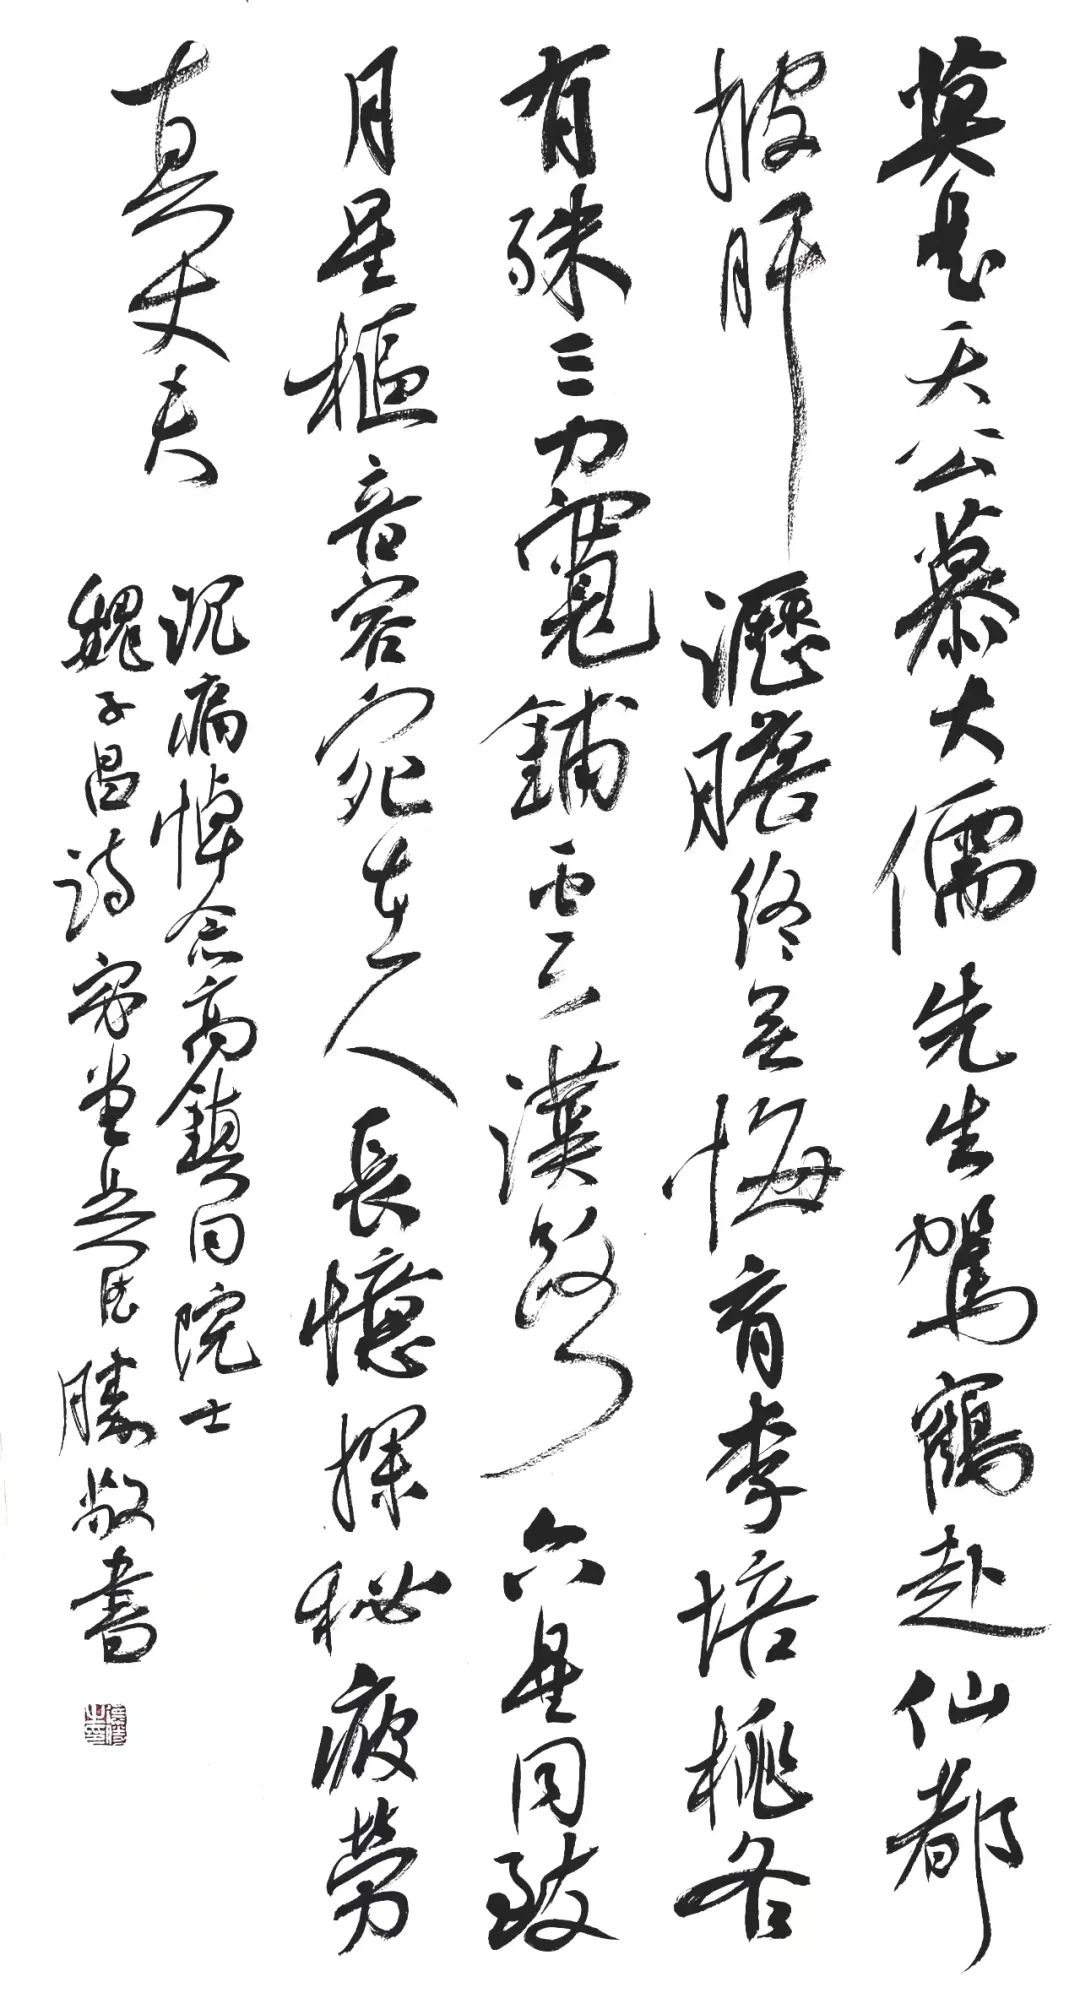 莫是天公慕大儒先生駕鶴赴仙都
披肝瀝膽終無悔育李培桃各
有殊三力寬鋪雲漢路六星同致
月星樞音容宛在人長憶探秘疲勞
真丈夫
沉痛悼念高鎮同院士
魏子昌詩 勝敬書